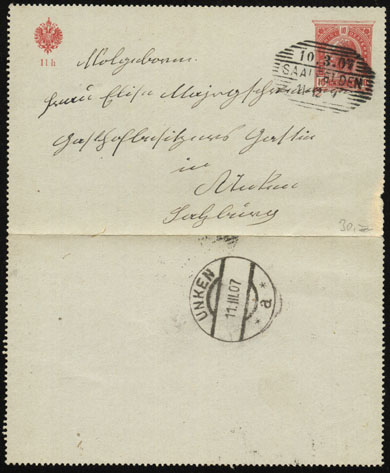 11 h
10.3.07
SAALFELDEN
Wolgeboren
Frau Elise
Gasthofbesitzers Gattin
in
Unken
Salzburg
30,-
UNKEN
11.III.07
* a *